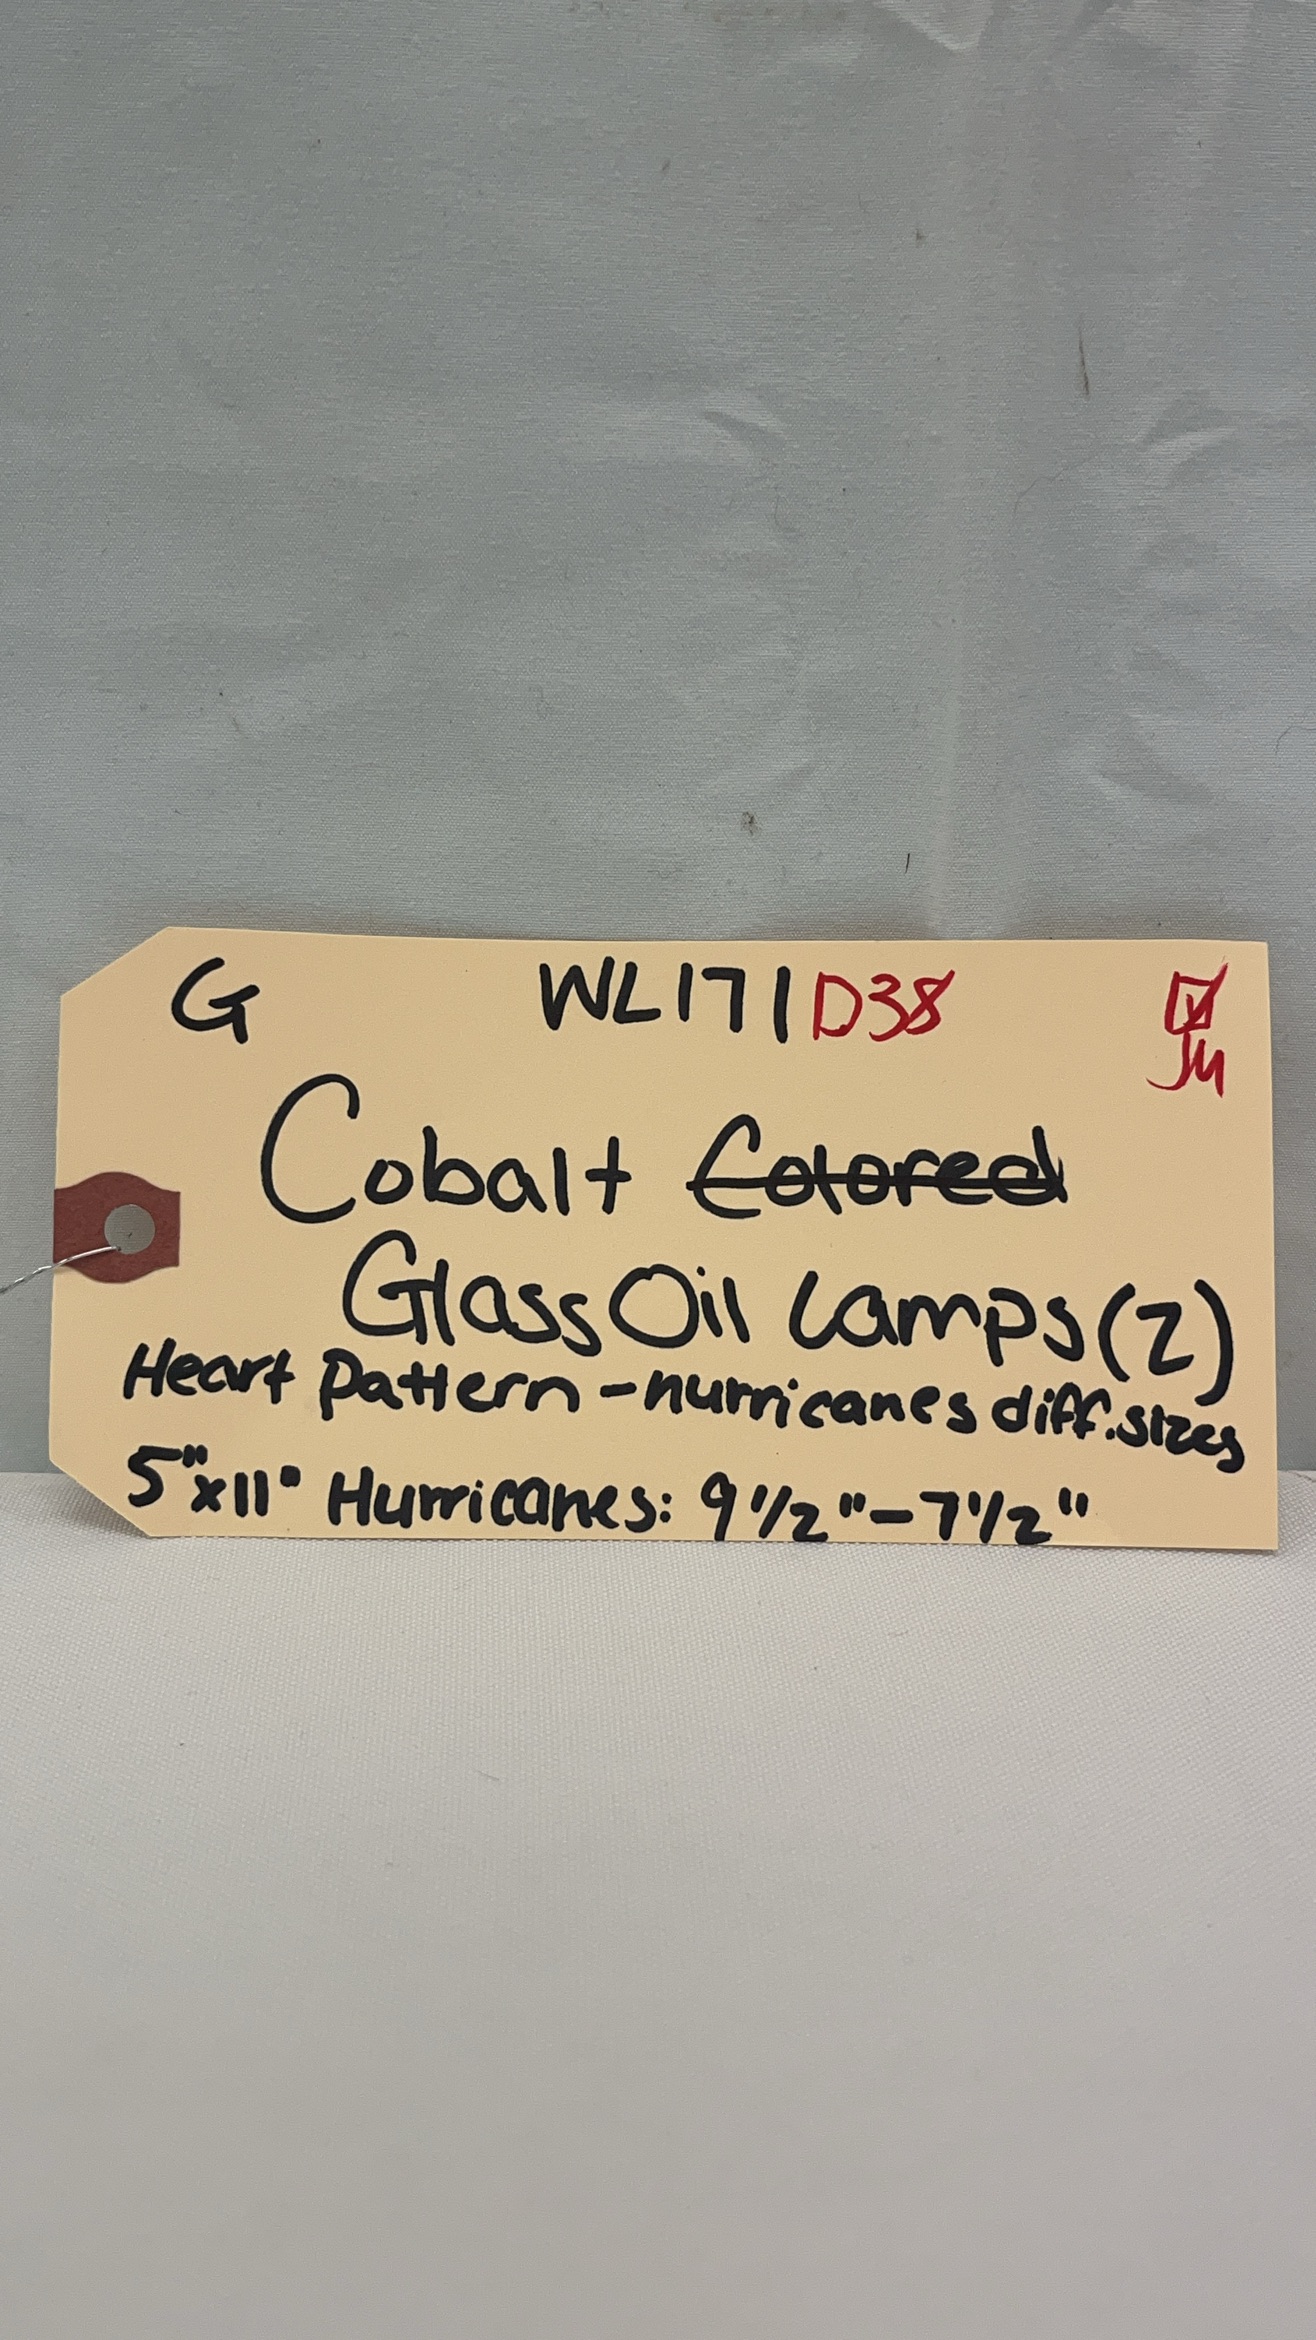 G WL171 D38
JM
Cobalt Colored
Glass Oil Lamps (2)
Heart Pattern - hurricanes diff. sizes
5" x 11" Hurricanes: 9 1/2" - 7 1/2"